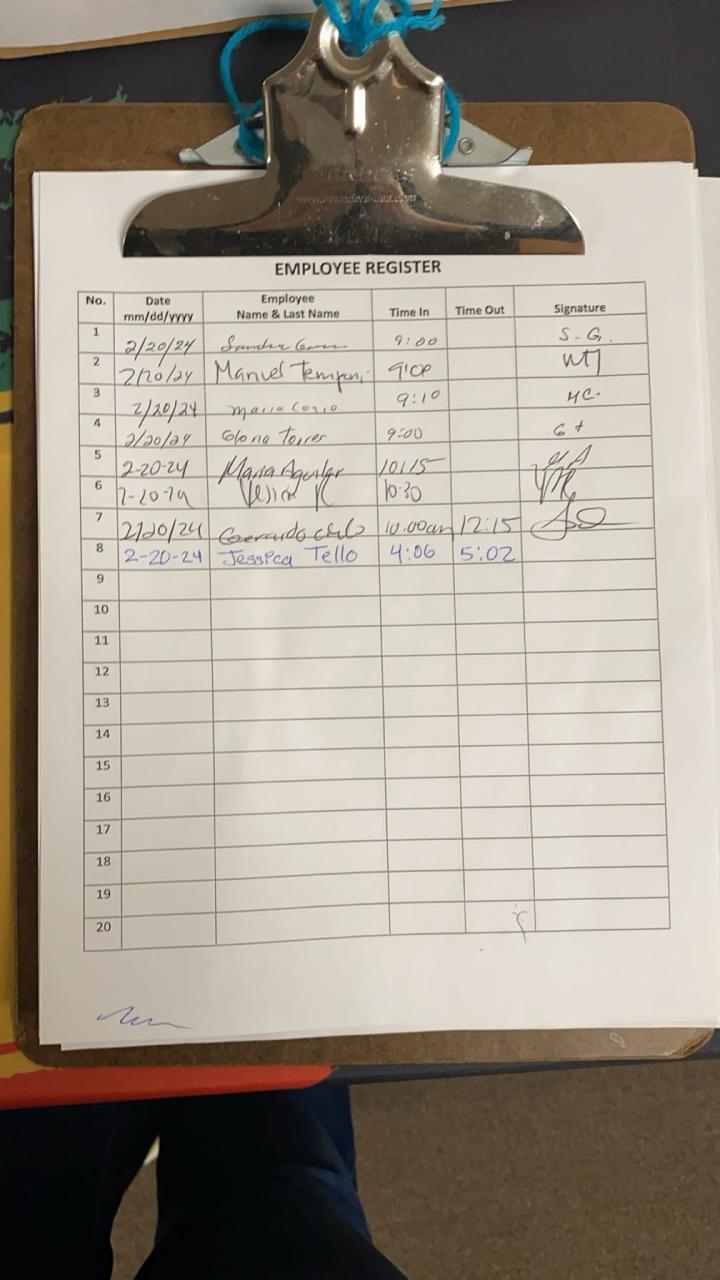 EMPLOYEE REGISTER
No. Date mm/dd/yyyy Employee Name & Last Name Time In Time Out Signature
1 2/20/24 9:00 S.G.
2 2/20/24 Manuel
3 2/20/24 Maria 9:10 MC.
4 2/20/24 Gloria Torres 9:00 Gt
5 2-20-24 Maria Aguilar 10:15
6 10:30
7 2/20/24 Gerardo 10.00am 12:15
8 2-20-24 Jessica Tello 4:06 5:02
9
10
11
12
13
14
15
16
17
18
19
20